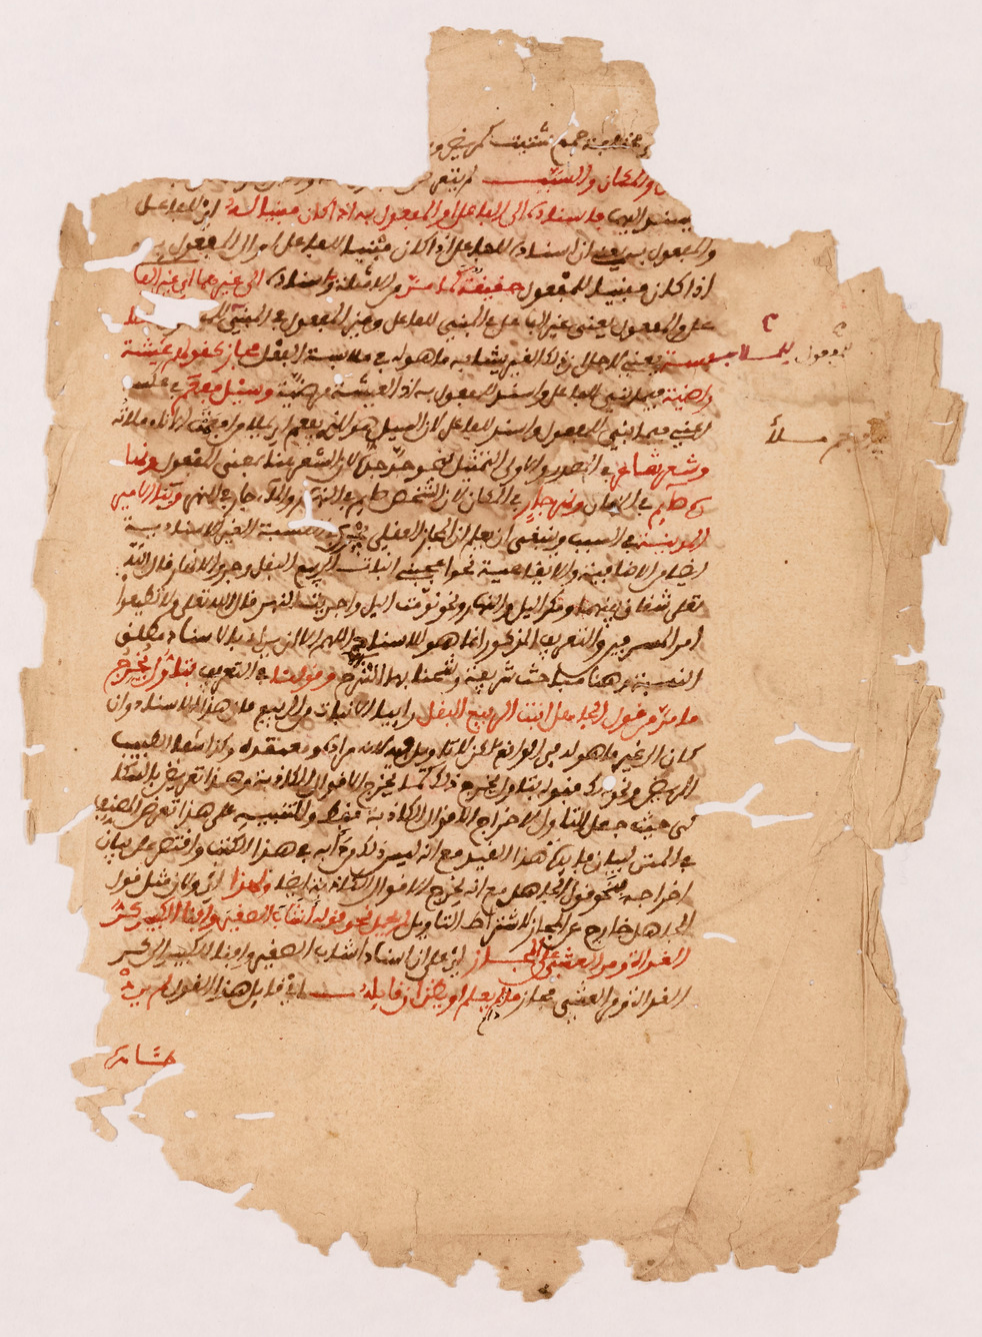 مختلفة جمع شتيت كمريض و
والمكان والسبب لم يتعرض
يسند اليها فاسناده الى الفاعل او المفعول به اذا كان مبنيا له اي للفاعل
والمفعول به يعني ان اسناده للفاعل اذا كان مبنيا للفاعل او الى المفعول به
اذا كان مبنيا للمفعول حقيقة كما مرّ من الامثلة واسناده الى غيرهما اي غير الفا
عل والمفعول يعني غير الفاعل في المبني للفاعل وغير المفعول في المبني
للملابسة يعني لاجل ان ذلك الغير يشابه ما هو له في ملابسة الفعل مجاز كقولهم عيشة
راضية فيما بني للفاعل واسند للمفعول به اذ العيشة مرضيّة وسيل مفعم في عكسه
اعني فيما بني للمفعول واسند للفاعل لان السيل هو الذي يفعم اي يملأ من افعمت الاناء ملأته
وشعر شاعر في المصدر والاولى التمثيل بنحو جدّ جدّه لان الشعر هنا بمعنى المفعول ونها
ره صايم في الزمان ونهر جارٍ في المكان لان الشخص صايم في النهار والماء جار في النهر وبنا الامير
المدينة في السبب وينبغي ان يعلم ان المجاز العقلي يجري في النسبة الغير الاسنادية
ايضا من الاضافية والايقاعية نحو اعجبني انبات الربيع البقل وجري الانهار قال اللّه
تعلى شقاق بينهما ومكر اليل والنهار ونحو نوّمت اليل واجريت النهر قال الله تعلى ولا تطيعوا
امر المسرفين والتعريف المذكور انما هو للاسنادي اللهم الا ان يراد بالاسناد مطلق
النسبة وهنا مباحث شريفة وشّحنا بها الشرح وقولنا في التعريف بتاوّل يُخرج
ما مرّ من قول الجاهل انبت الربيع البقل رابيا الانبات من الربيع فان هذا الاسناد وان
كان الى غير ما هو له في الواقع لكن لا تاويل فيه لانه مراده ومعتقده وكذا شفا الطبيب
المريض ونحو ذلك فقوله بتاول يخرج ذلك كما يخرج الاقوال الكاذبة وهذا تعريض بالسكا
كي حيث جعل التأول لاخراج الاقوال الكاذبة فقط وللتنبيه على هذا تعرض المصنف
في المتن لبيان فايدة هذا القيد مع انه ليس ذلك من دأبه في هذا الكتاب واقتصر على بيان
اخراجه لنحو قول الجاهل مع انه يخرج الاقوال الكاذبة ايضا ولهذا اي ولان مثل قول
الجاهل خارج عن المجاز لاشتراط التاويل لم يحمل نحو قوله اشاب الصغير وافنا الكبير كرّ
الغداة ومر العشي على المجاز اي على ان اسناد اشاب الصغير وافنا الكبير الى كر
الغداة ومر العشي مجاز ما لم يعلم او يظن ان قايله اي قايل هذا القول لم يرد
ظاهره
للمفعول للملابسة
ملأ